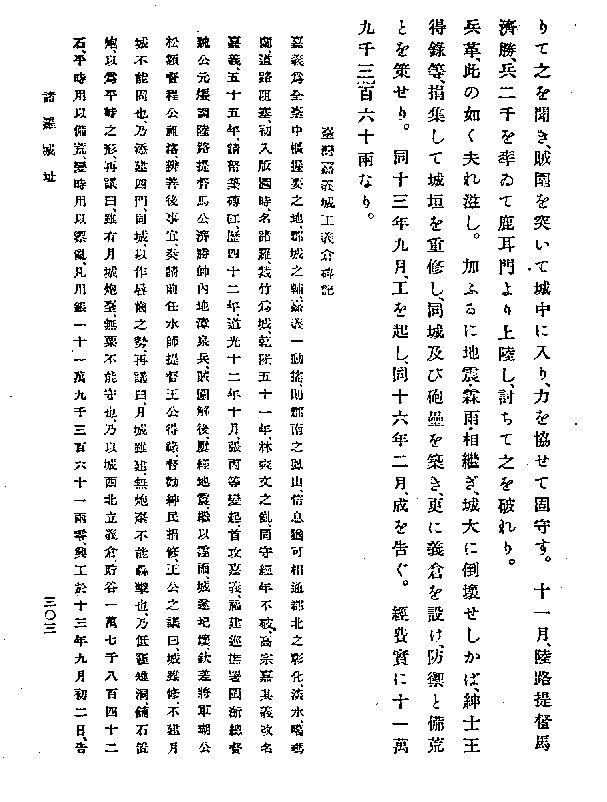 りて之を聞き、賊圍を突いて城中に入り、力を協せて固守す。十一月、陸路提督馬
濟勝、兵二千を率ゐて鹿耳門より上陸し、討ちて之を破れり。
兵革、此の如く夫れ滋し。加ふるに地震、霖雨、相繼ぎ、城大に倒壞せしかば、紳士王
得錄等、捐集して城垣を重修し、同城及び砲壘を築き、更に義倉を設け、防禦と備荒
とを策せり。同十三年九月、工を起し、同十六年二月、成を告ぐ。經費實に十一萬
九千三百六十兩なり。
臺灣嘉義城工義倉碑記
嘉義爲全臺中權握要之地、郡城之輔、嘉義一動搖、則郡南之鳳山信息猶可相通、郡北之彰化、淡水、噶瑪
蘭、道路阻塞、初入版圖時、名諸羅、栽竹爲城、乾隆五十一年、林爽文之亂、固守經年不破、高宗嘉其義、改名
嘉義、五十五年、請帑築磚、訌歷四十二年、道光十二年十月、張丙等變起、首攻嘉義、福建巡撫署閩浙總督
魏公元烺、調陸路提督馬公濟勝、帥內地漳泉兵、賊圍解後、屢經地震、繼以霪雨、城遂圮壞、欽差將軍瑚公
松額、督程公祖洛、辦善後事宜、奏請前任水師提督王公得錄、督勸紳民捐修、王公之議曰、城雖修、不建月
城、不能固也、乃添建四門、同城、以作唇齒之勢、再議曰、月城雖建、無炮臺、不能轟擊也、乃低窪墩洞、舖石置
炮、以爲平時之形、再議曰、雖有月城炮臺、無粟不能守也、乃以城西北立義倉、貯谷一萬七千八百四十二
石、平時用以備荒、變時用以禦亂、凡用銀一十一萬九千三百六十一兩零、興工於十三年九月初二日、告
諸羅城址
三〇三